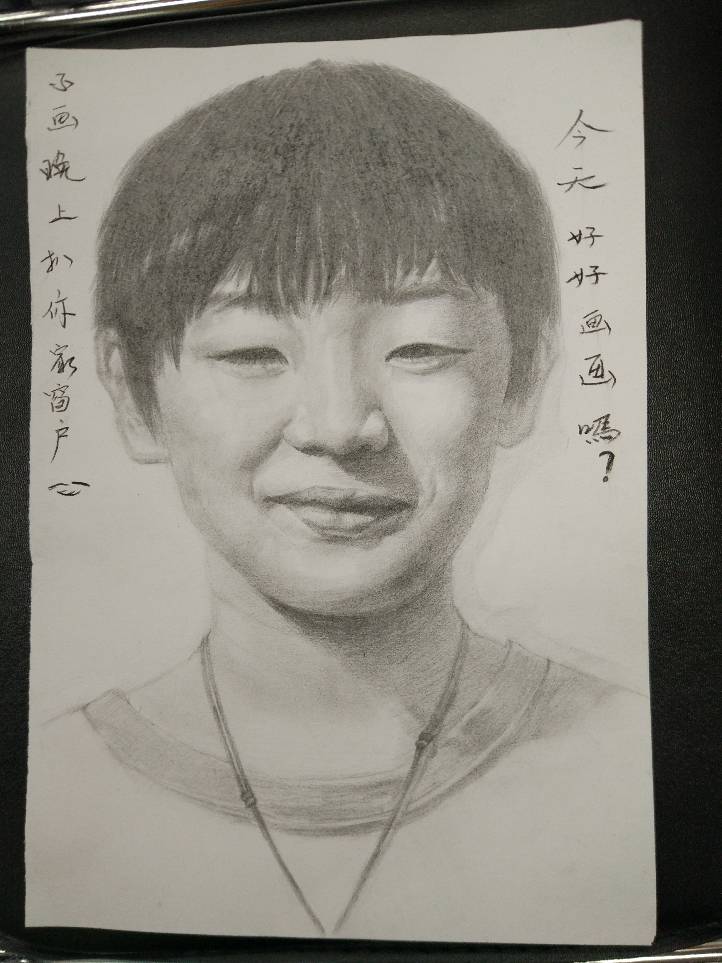 今天好好画画嗎？
不画晚上扒你家窗户